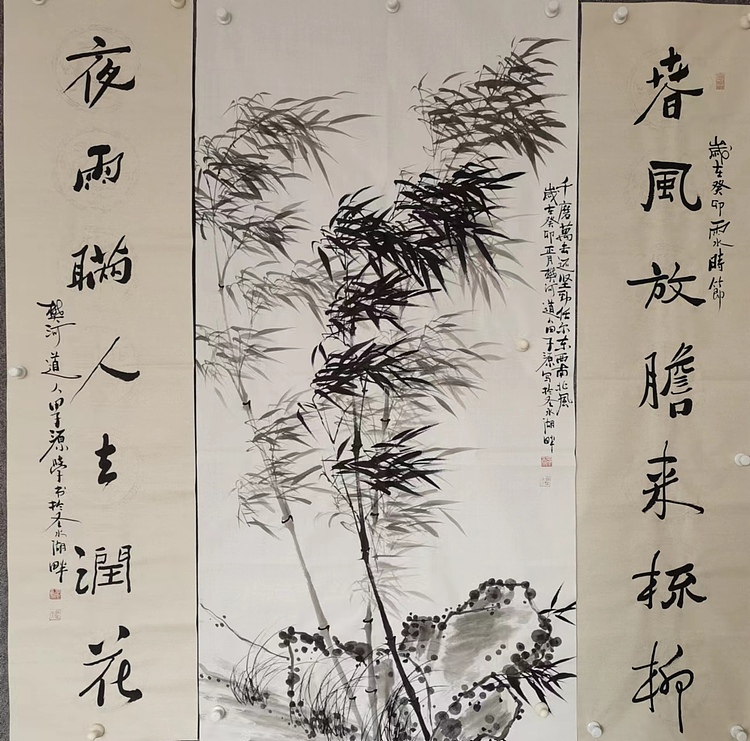 春風放膽来梳柳
歲在癸卯雨水時節
千磨萬击还坚劲任尔东西南北風
歲在癸卯正月樊河道人田子源写於圣水湖畔
夜雨瞒人去潤花
樊河道人田子源学书於圣水湖畔